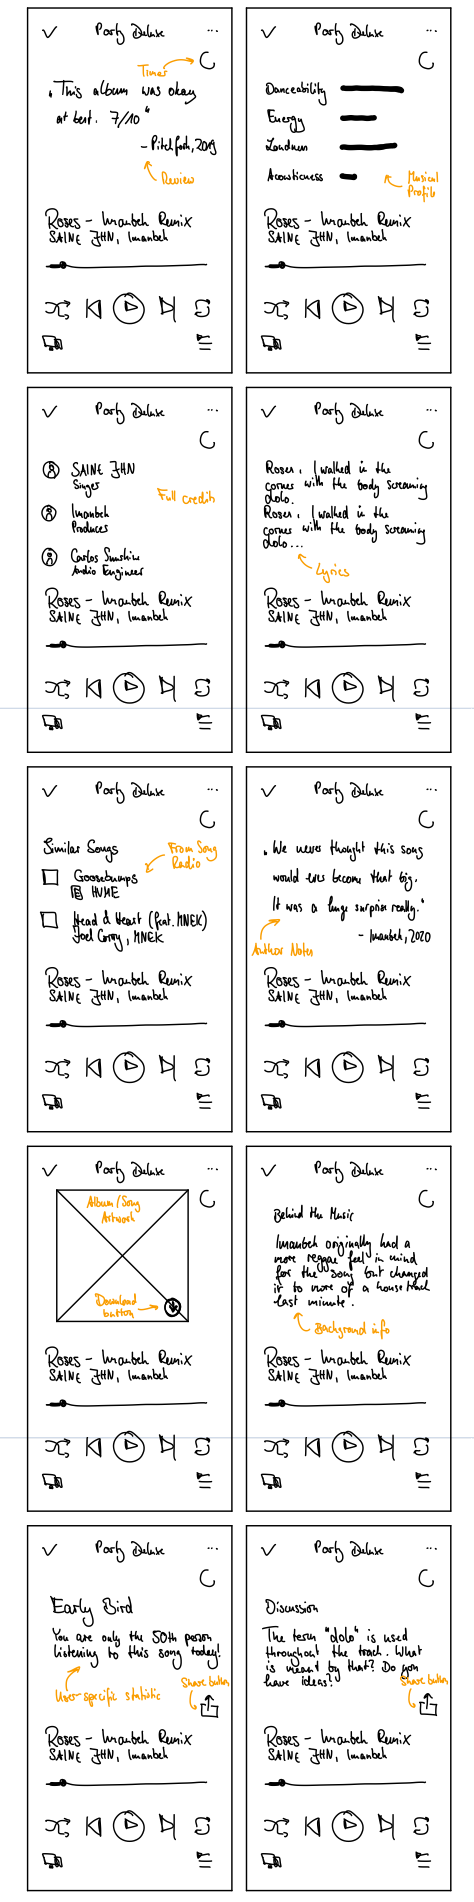 Party Deluxe
Timer
"This album was okay
at best. 7/10"
- Pitchfork, 2019
Review
Roses - Imanbek Remix
SAINt JHN, Imanbek
Party Deluxe
Danceability
Energy
Loudness
Acousticness
Musical
Profile
Roses - Imanbek Remix
SAINt JHN, Imanbek
Party Deluxe
SAINt JHN
Singer
Full credits
Imanbek
Producer
Carlos Sunshine
Audio Engineer
Roses - Imanbek Remix
SAINt JHN, Imanbek
Party Deluxe
Roses, I walked in the
corner with the body screaming
dolo.
Roses, I walked in the
corner with the body screaming
dolo...
Lyrics
Roses - Imanbek Remix
SAINt JHN, Imanbek
Party Deluxe
Similar Songs
From Song
Radio
Goosebumps
HVME
Head & Heart (feat. MNEK)
Joel Corry, MNEK
Roses - Imanbek Remix
SAINt JHN, Imanbek
Party Deluxe
"We never thought this song
would ever become that big.
It was a huge surprise really."
- Imanbek, 2020
Author Notes
Roses - Imanbek Remix
SAINt JHN, Imanbek
Party Deluxe
Album/Song
Artwork
Download
button
Roses - Imanbek Remix
SAINt JHN, Imanbek
Party Deluxe
Behind the Music
Imanbek originally had a
more reggae feel in mind
for the song but changed
it to more of a house track
last minute.
Background info
Roses - Imanbek Remix
SAINt JHN, Imanbek
Party Deluxe
Early Bird
You are only the 50th person
listening to this song today!
User-specific statistic
Share button
Roses - Imanbek Remix
SAINt JHN, Imanbek
Party Deluxe
Discussion
The term "dolo" is used
throughout the track. What
is meant by that? Do you
have ideas?
Share button
Roses - Imanbek Remix
SAINt JHN, Imanbek